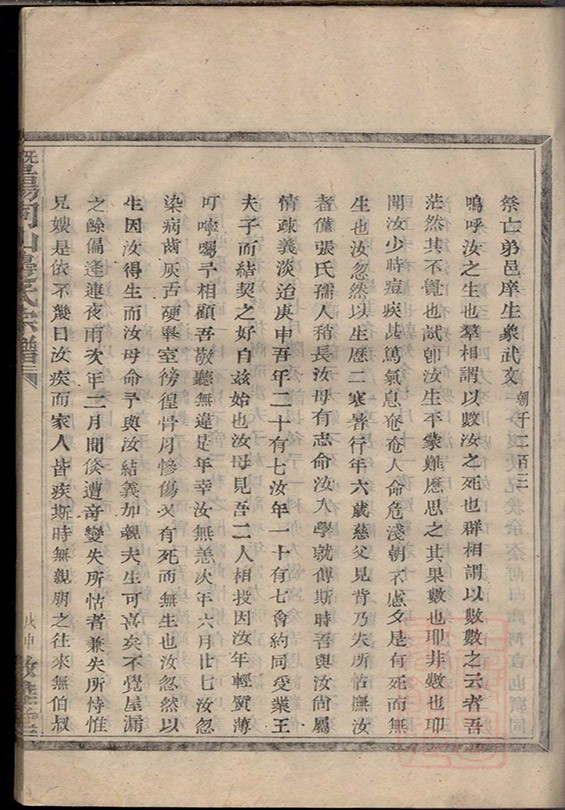 祭亡弟邑庠生象武文 朝 千二百三
嗚呼汝之生也羣相謂以數汝之死也群相謂以數數之云者吾
茫然其不覺也試卽汝生平蒙難歷思之其果數也耶非數也耶
聞汝少時痘疾甚篤氣息奄奄人命危淺朝不慮夕是有死而無
生也汝忽然以生歷二寒暑行年六歲慈父見背乃失所怙撫汝
者僅張氏孺人稍長汝母有志命汝入學就傅斯時吾與汝尚屬
情疎義淡迨庚申吾年二十有七汝年一十有七會約同受業王
夫子而結契之好自茲始也汝母見吾二人相投因汝年輕質薄
叮嚀囑予相顧吾敬聽無違是年幸汝無恙次年六月廿七汝忽
染病齒灰舌硬舉室徬徨骨肉慘傷又有死而無生也汝忽然以
生因汝得生而汝母命予與汝結義如親夫生可喜矣不覺屋漏
之餘偏逢連夜雨次年二月間倐遭竒變失所怙者兼失所恃惟
兄嫂是依不幾日汝疾而家人皆疾斯時無親朋之往來無伯叔
暨陽同山壽氏宗譜
庚申 敦睦堂